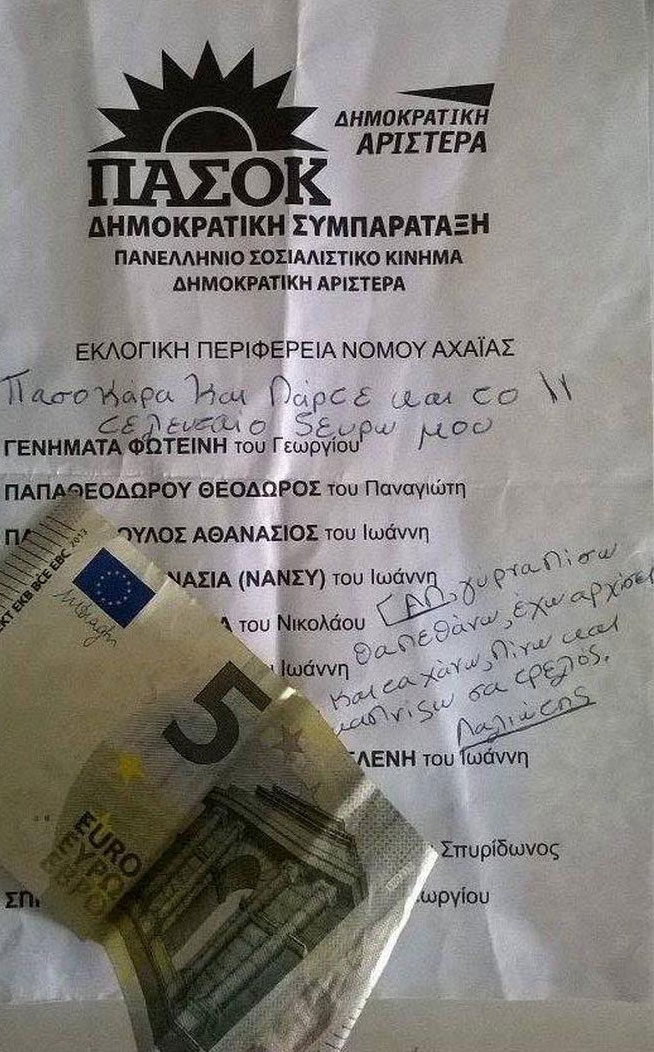 ΔΗΜΟΚΡΑΤΙΚΗ
ΑΡΙΣΤΕΡΑ
ΠΑΣΟΚ
ΔΗΜΟΚΡΑΤΙΚΗ ΣΥΜΠΑΡΑΤΑΞΗ
ΠΑΝΕΛΛΗΝΙΟ ΣΟΣΙΑΛΙΣΤΙΚΟ ΚΙΝΗΜΑ
ΔΗΜΟΚΡΑΤΙΚΗ ΑΡΙΣΤΕΡΑ
ΕΚΛΟΓΙΚΗ ΠΕΡΙΦΕΡΕΙΑ ΝΟΜΟΥ ΑΧΑΪΑΣ
Πασοκάρα και Πάρτε και το
τελευταίο 5ευρω μου
ΓΕΝΗΜΑΤΑ ΦΩΤΕΙΝΗ του Γεωργίου
ΠΑΠΑΘΕΟΔΩΡΟΥ ΘΕΟΔΩΡΟΣ του Παναγιώτη
ΟΥΛΟΣ ΑΘΑΝΑΣΙΟΣ του Ιωάννη
ΝΑΣΙΑ (ΝΑΝΣΥ) του Ιωάννη
του Νικολάου
Ιωάννη
ΛΕΝΗ του Ιωάννη
Σπυρίδωνος
ωργίου
ΑΠ, γύρνα Πίσω
θα πεθάνω, έχω αρχίσει
και τα χάνω, Πίνω και
καπνίζω σα τρελός.
Λαλιώτης
EKT EKB BCE EBC 2013
5
EURO
ΕΥΡΩ
ЕВРО